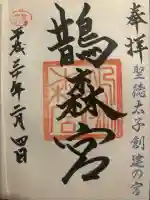 奉拝
聖徳太子創建の宮
鵲森宮
平成三十年二月四日